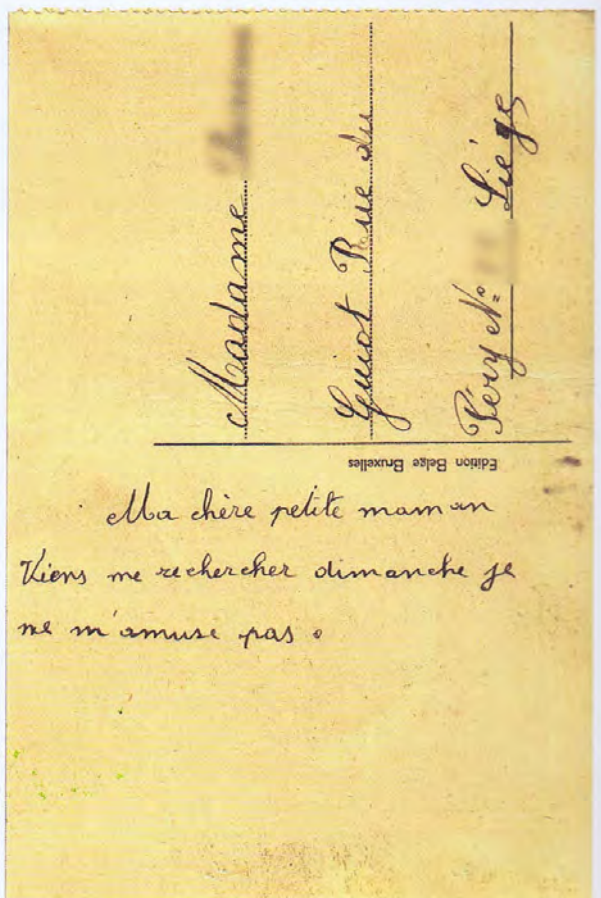 Madame
Guiot Rue du
Péry N° Liége
Edition Belge Bruxelles
Ma chère petite maman
Viens me rechercher dimanche je
ne m'amuse pas.